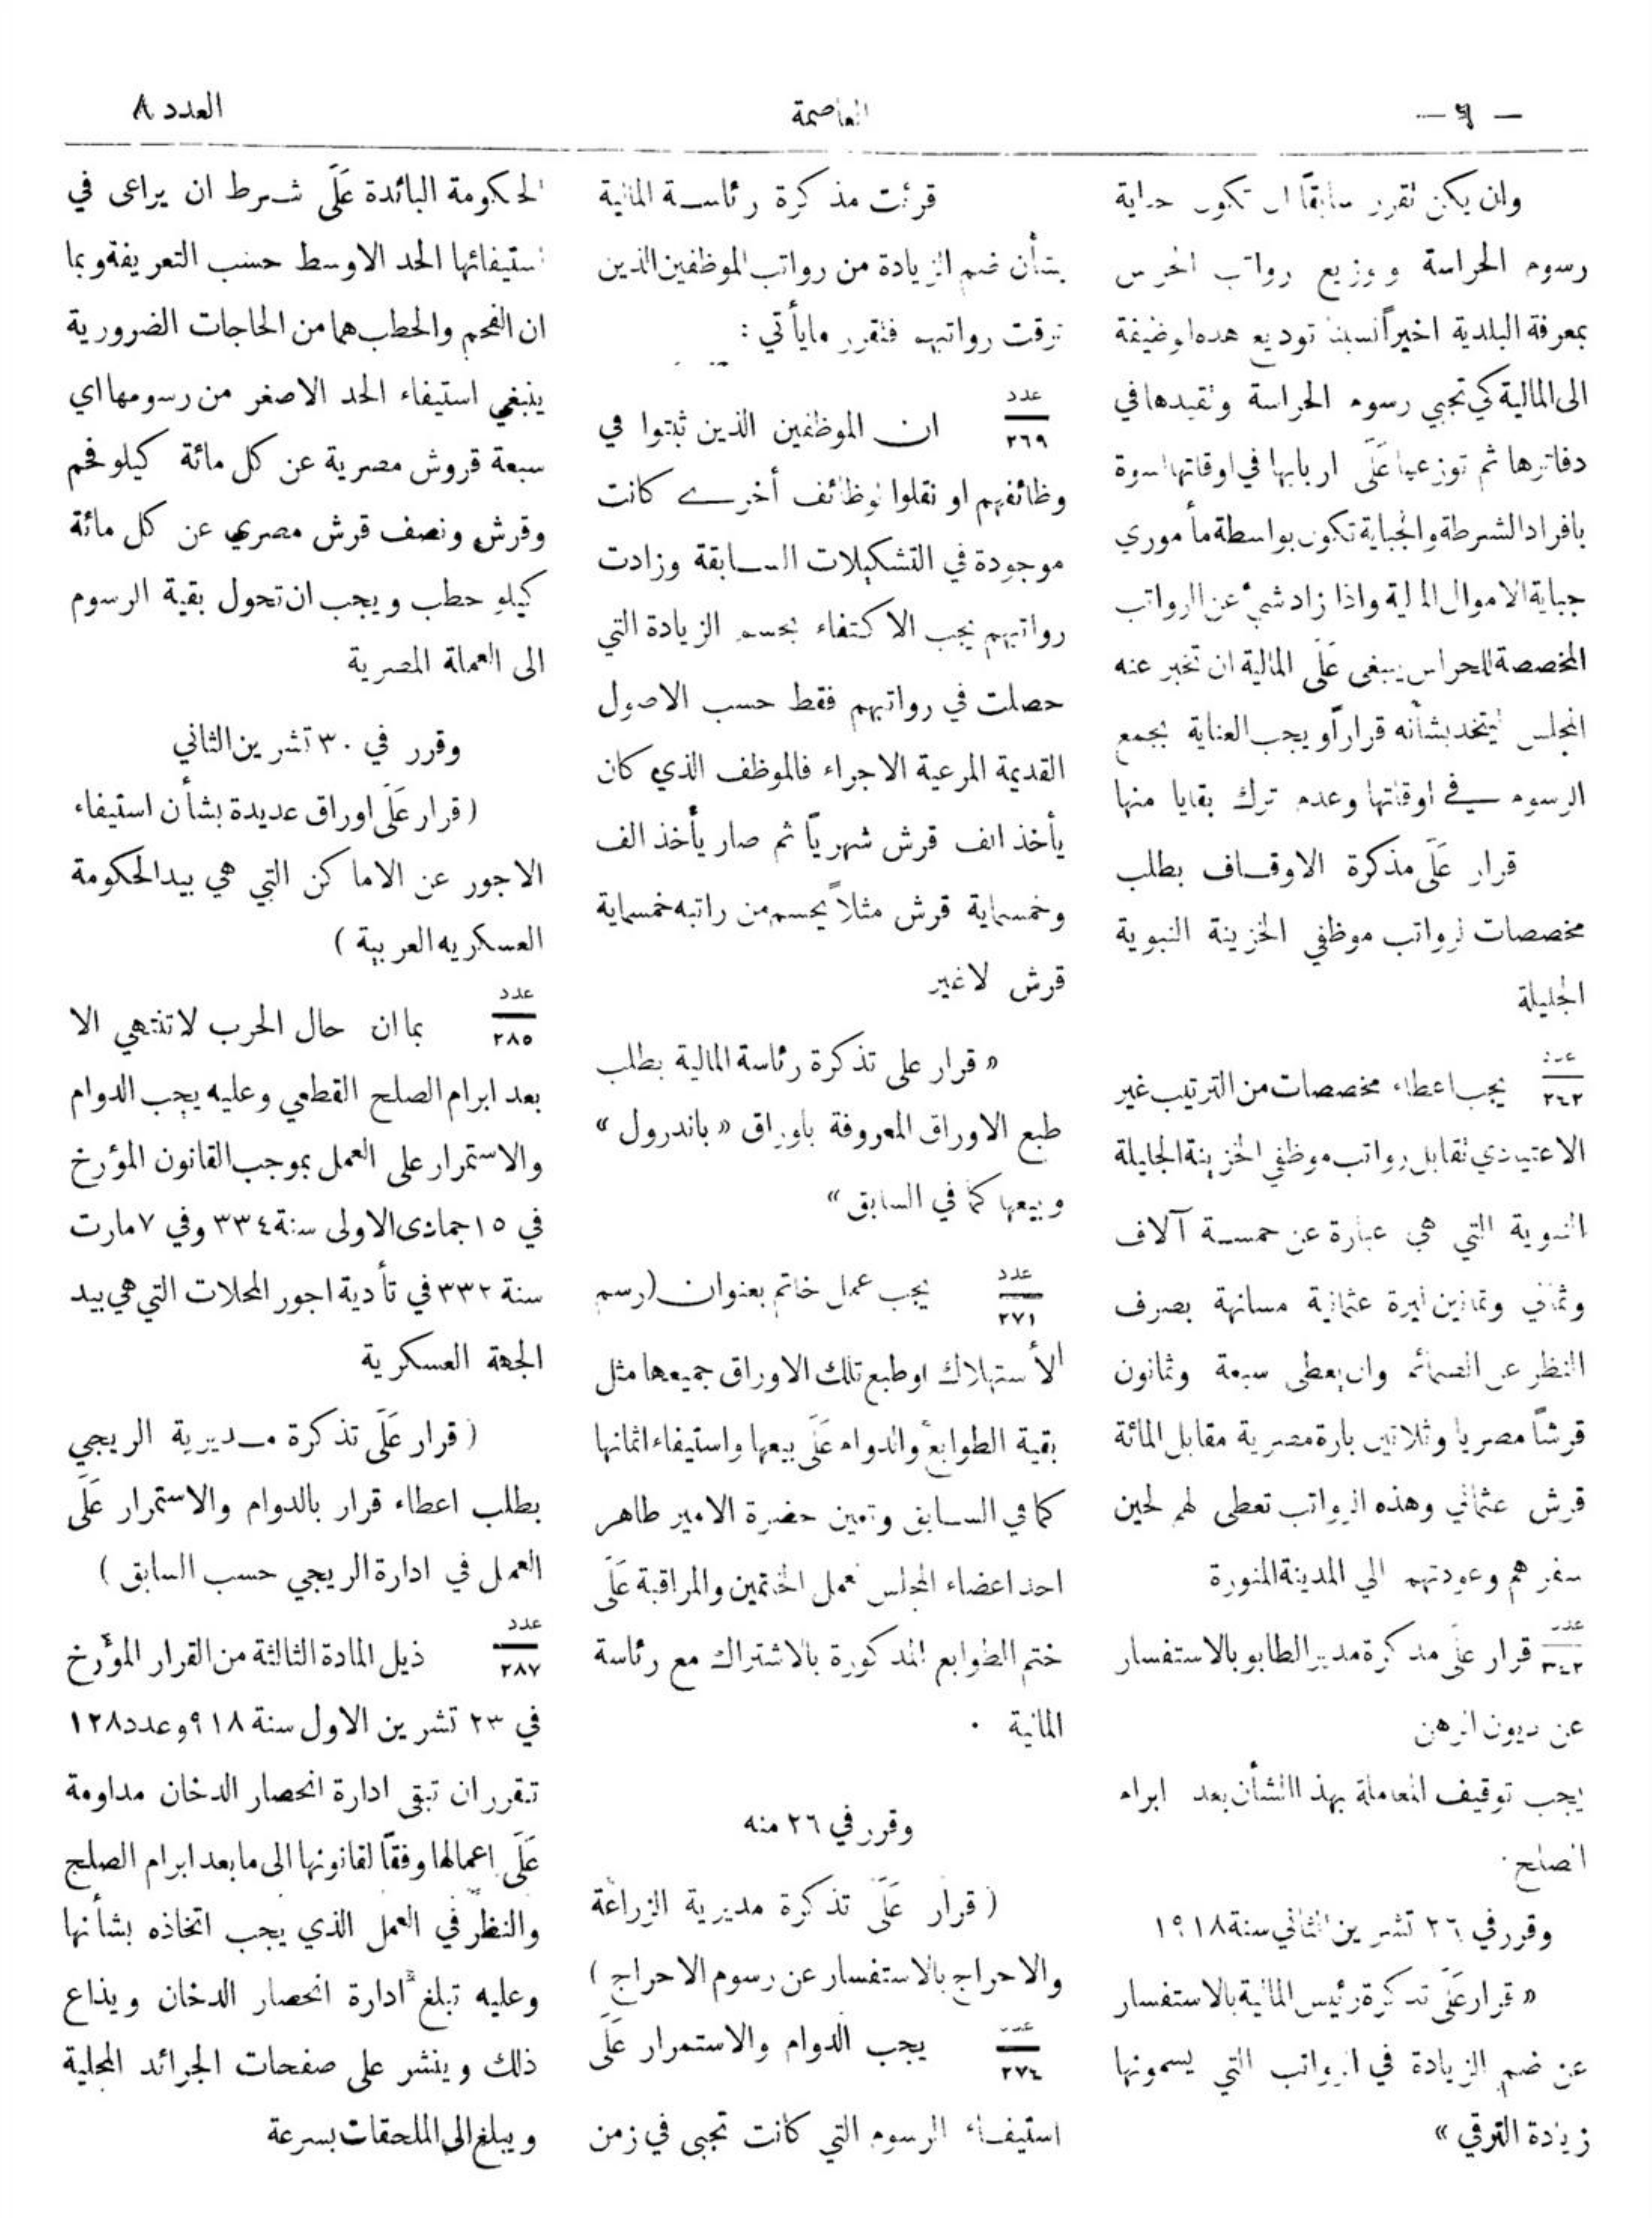 العدد ٨
العاصمة
وان يكن تقرر سابقاً ان تكون جباية
رسوم الحراسة وتوزيع رواتب الحرس
بمعرفة البلدية اخيراً نسبنا توديع هذه الوظيفة
الى المالية كي تجبي رسوم الحراسة وتقيدها في
دفاترها ثم توزعها عَلَى اربابها في اوقاتها اسوة
بافراد الشرطة والجباية تكون بواسطة مأموري
جباية الاموال المالية واذا زاد شيء عن الرواتب
المخصصة للحراس ينبغي عَلَى المالية ان تخبر عنه
المجلس ليتخذ بشأنه قراراً ويجب العناية بجمع
الرسوم في اوقاتها وعدم ترك بقايا منها
قرار عَلَى مذكرة الاوقاف بطلب
مخصصات لرواتب موظفي الخزينة النبوية
الجليلة
عدد
٢٤٢
يجب اعطاء مخصصات من الترتيب غير
الاعتيادي تقابل رواتب موظفي الخزينة الجليلة
النبوية التي هي عبارة عن خمسة آلاف
وثماني وثمانين ليرة عثمانية مسانهة بصرف
النظر عن الضمائم وان يعطى سبعة وثمانون
قرشاً مصريا وثلاثين بارة مصرية مقابل المائة
قرش عثماني وهذه الرواتب تعطى لهم لحين
سفرهم وعودتهم الي المدينة المنورة
عدد
٣٤٢
قرار عَلَى مذكرة مدير الطابو بالاستفسار
عن ديون الرهن
يجب توقيف المعاملة بهذا الشأن بعد ابرام
الصلح .
وقرر في ٢٦ تشرين الثاني سنة ١٩١٨
« قرار عَلَى تذكرة رئيس المالية بالاستفسار
عن ضم الزيادة في الرواتب التي يسمونها
زيادة الترقي »
قرئت مذكرة رئاسة المالية
بشأن ضم الزيادة من رواتب الموظفين الذين
ترقت رواتبهم فتقرر ما يأتي :
عدد
٢٦٩
ان الموظفين الذين ثبتوا في
وظائفهم او نقلوا لوظائف أخرى كانت
موجودة في التشكيلات السابقة وزادت
رواتبهم يجب الاكتفاء بحسم الزيادة التي
حصلت في رواتبهم فقط حسب الاصول
القديمة المرعية الاجراء فالموظف الذي كان
يأخذ الف قرش شهرياً ثم صار يأخذ الف
وخمسماية قرش مثلاً يحسم من راتبه خمسماية
قرش لاغير
« قرار على تذكرة رئاسة المالية بطلب
طبع الاوراق المعروفة باوراق « باندرول »
وبيعها كما في السابق »
عدد
٢٧١
يجب عمل خاتم بعنوان (رسم
الأستهلاك اوطبع تلك الاوراق جميعها مثل
بقية الطوابع والدوام عَلَى بيعها واستيفاء اثمانها
كما في السابق وتعين حضرة الامير طاهر
احد اعضاء المجلس لعمل الختمين والمراقبة عَلَى
ختم الطوابع المذكورة بالاشتراك مع رئاسة
المالية .
وقرر في ٢٦ منه
( قرار عَلَى تذكرة مديرية الزراعة
والاحراج بالاستفسار عن رسوم الاحراج )
عدد
٢٧٤
يجب الدوام والاستمرار عَلَى
استيفاء الرسوم التي كانت تجبى في زمن
الحكومة البائدة عَلَى شرط ان يراعى في
استيفائها الحد الاوسط حسب التعريفة وبما
ان الفحم والحطب هما من الحاجات الضرورية
ينبغي استيفاء الحد الاصغر من رسومها اي
سبعة قروش مصرية عن كل مائة كيلو فحم
وقرش ونصف قرش مصري عن كل مائة
كيلو حطب ويجب ان تحول بقية الرسوم
الى العملة المصرية
وقرر في ٣٠ تشرين الثاني
( قرار عَلَى اوراق عديدة بشأن استيفاء
الاجور عن الاماكن التي هي بيد الحكومة
العسكريه العربية )
عدد
٢٨٥
بما ان حال الحرب لا تنتهي الا
بعد ابرام الصلح القطعي وعليه يجب الدوام
والاستمرار على العمل بموجب القانون المؤرخ
في ١٥ جمادى الاولى سنة ٣٣٤ وفي ٧ مارت
سنة ٣٣٢ في تأدية اجور المحلات التي هي بيد
الجهة العسكرية
( قرار عَلَى تذكرة مديرية الريجي
بطلب اعطاء قرار بالدوام والاستمرار عَلَى
العمل في ادارة الريجي حسب السابق )
عدد
٢٨٧
ذيل المادة الثالثة من القرار المؤرخ
في ٢٣ تشرين الاول سنة ٩١٨ وعدد ١٢٨
تقرر ان تبقى ادارة انحصار الدخان مداومة
عَلَى اعمالها وفقاً لقانونها الى ما بعد ابرام الصلح
والنظر في العمل الذي يجب اتخاذه بشأنها
وعليه تبلغ ادارة انحصار الدخان ويذاع
ذلك وينشر على صفحات الجرائد المحلية
ويبلغ الى الملحقات بسرعة